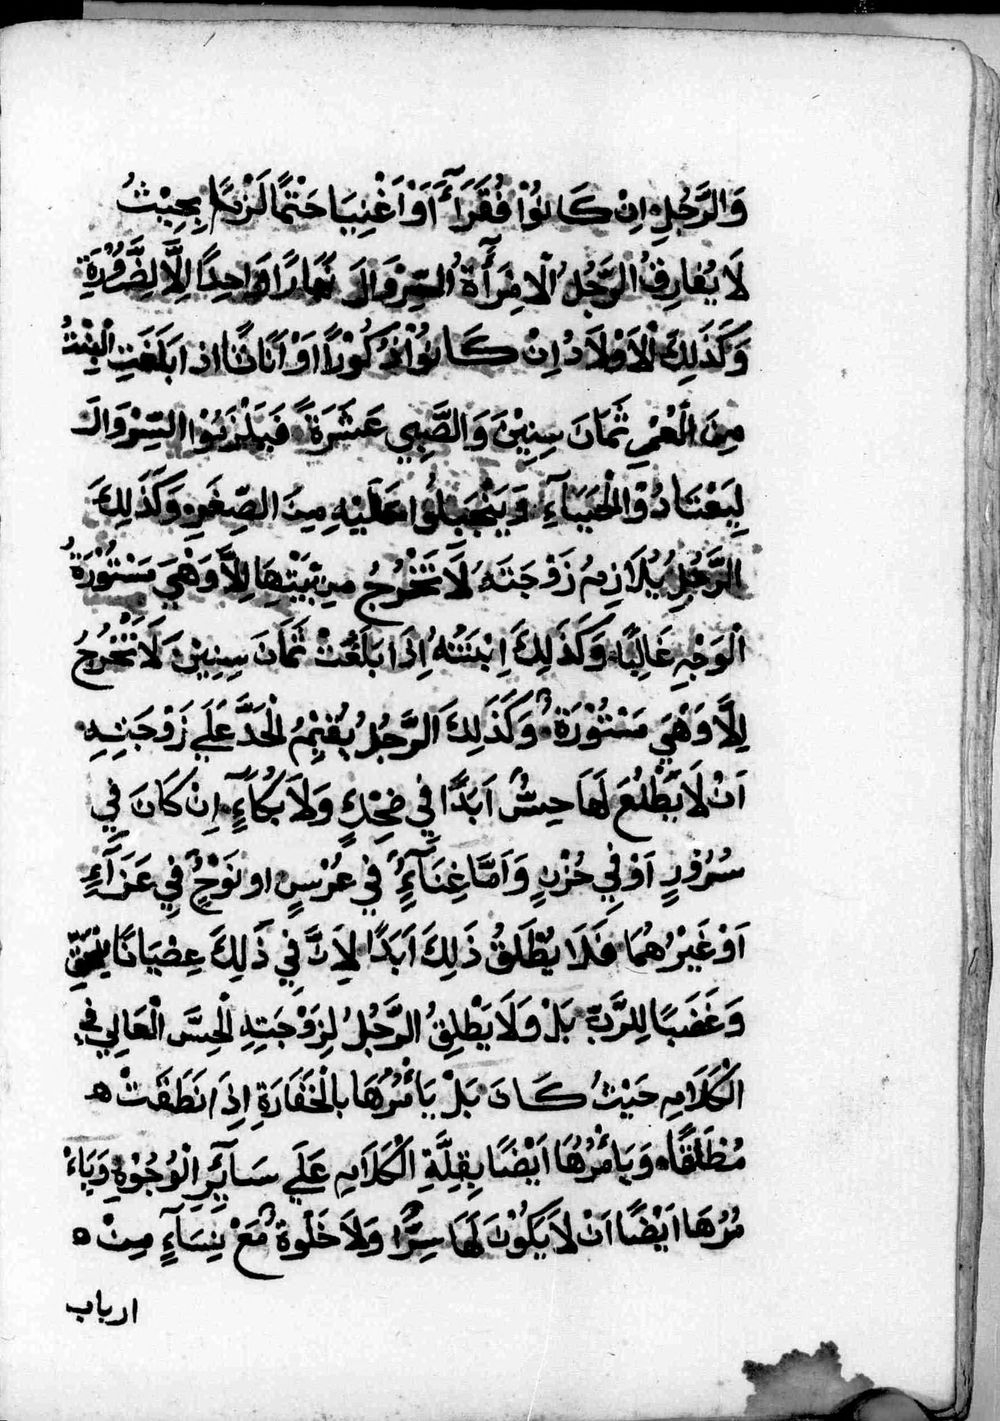 وَالرَّجُلِ اِنْ كَانُوْا فُقَرَآءَ اَوْ اَغْنِيَا حَتْمًا لَزْمًا بِحِيْثُ
لَا يُفَارِقُ الرَّجُلُ الْامْرَأَةُ السِّرْوَالَ نَهَارًا وَاحِدًا اِلَّا لِضَّرُوْرَةِ
وَكَذَلِكَ الْاَوْلَادُ اِنْ كَانُوْا ذُكُوْرًا اَوْ اَنَاثًا اذا بَلَغَتِ الْبِنْتُ
مِنَ الْعُمْرِ ثَمَانَ سِنِيْنَ وَالصَّبِي عَشَرَةً فَيَلْزَمُوْا السِّرْوَالَ
لِيَعْتَادُوْا الْحَيَآءِ وَيَنْجَبِلُوا عَلَيْهِ مِنَ الصِّغَرِ وَكَذَلِكَ
الرَّجُلِ يُلَازِمُ زَوْجَتَهُ لَا تَخْرُجُ مِنْ بَيْتِهَا اِلَّا وَهْيَ مَسْتُوْرَةُ
الْوَجْهِ غَالِبًا وَكَذَلِكَ اِبْنَتُهُ اِذَا بَلَغَتْ ثَمَانَ سِنِيْنَ لَا تَخْرُجُ
اِلَّا وَهْيَ مَسْتُوْرَةٌ وَكَذَلِكَ الرَّجُلُ يُقِيْمُ الْحَدَّ عَلَي زَوْجَتِهِ
اَنْ لَا يَطْلُعَ لَهَا حِسٌّ اَبَدًا فِي ضِحْكٍ وَلَا بُكَآءٍ اِنْ كَانَ فِي
سُرُوْرٍ اَوْ فِي حُزْنٍ وَاَمَّا غِنَآءٍ فِي عُرْسٍ او نَوْحٌ فِي عَزَآءٍ
اَوْ غَيْرُهُمَا فَلَا يُطْلَقُ ذَلِكَ اَبَدًا لِاَنَّ فِي ذَلِكَ عِصْيَانًا لِلْحَقِّ
وَغَضَبًا لِلرَّبِّ بَلْ وَلَا يَطْلِقُ الرَّجُلُ لِزَوْجَتِهِ الْحِسَّ الْعَالِي فِي
الْكَلَامِ حَيْثُ كَانَ بَلْ يَأْمُرُهَا بِالْخَفَارَةِ اِذَا نَطَقَتْ
مُطْلَقًا وَيَأْمُرُهَا اَيْضًا بِقِلَّةِ الْكَلَامِ عَلَي سَآئِرِ الْوُجُوْهِ وَيَاءْ
مُرُهَا اَيْضًا اَنْ لَا يَكُوْنَ لَهَا سِرًّا وَلَا خَلْوةٌ مَعْ نِسَآءٍ مِنْ
ارباب